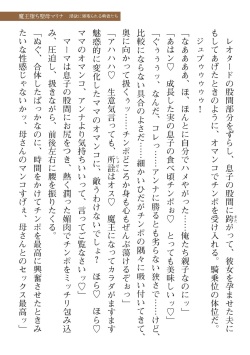 魔王堕ち聖母マリナ
レオタードの股間部分をずらし、息子の股間に跨がって、彼女を孕ませた夫に
もしてあげたときのように、オマンコでチンポを受け入れる。騎乗位の体位だ。
ジュブゥゥゥゥ!
「なぁああぁ、ほ、ほんとに自分でハメやがった……俺たち親子なのにッ」
「あはン♡ 成長した実の息子の食べ頃チンポぉ♡ とっても美味しィ♡」
「ぐぅぅぅッ、なんだ、コレはっ……アンナに勝るとも劣らない狭さで……けど、
比較にならない熱さのよぉだッ……細かいひだがチンポの隅々に吸い付いてきて、
奥に向かって扱くぅッ……チンポどころか身も心もぜんぶ蕩けるぞぉっ」
「アハハハ♡ 生意気言っても、所詮はオス♡ 魔王になってカラダがますます
魅惑的に変化したママのオマンコに、敵うわけないでしょ? ほら♡ ほら♡
ママのオマンコ、アンナより気持ちいいって、言ってご覧なさいッ♡」
マーマは息子の股間にお尻をつき、熱く潤った媚肉でチンポをミッチリ包み込
み、圧迫し、扱きながら、前後左右に腰を振りたくる。
「ぬぐぅ、合体したばかりなのに、時間をかけてチンポを最高に興奮させたときみ
たいな性感じゃないかッ、母さんのマンコすげぇ、母さんとのセックス最高ッ」